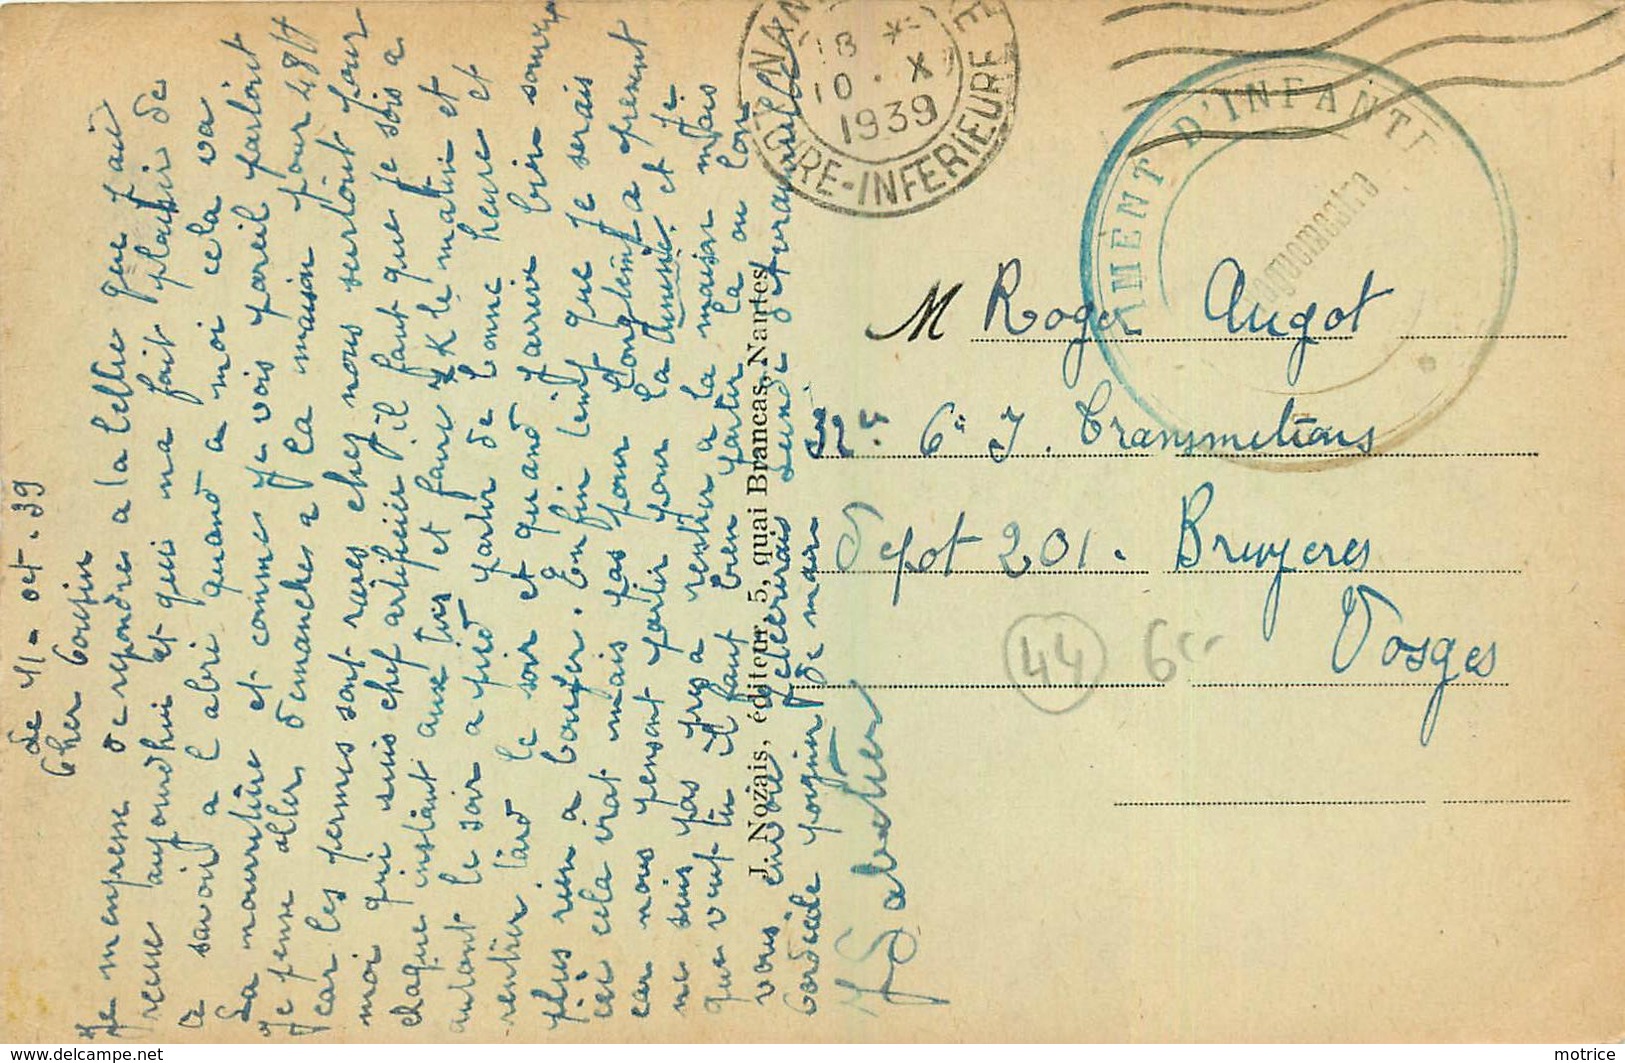 Le 11 - oct. 39
Cher Cousin
Je m'enpresse de repondre a la lettre que j'ai
recue aujourdhui et qui ma fait plaisir de
te savoir a l abri quand a moi cela va
La nourriture et connes je vois pareil partout
Je pense aller dimanche a la maison pour 48H
car les permes sont rares chez nous surtout pour
moi qui suis chef artificier il faut que je sois a
chaque instant aux tirs et faire K le matin et
autant le soir a pied partir de bonne heure et
rentrer tard le soir et quand j'arrive bien souvent
plus rien a bouffer. En fin tent que je serais
ici cela irat mais pas pour longtemp a present
car nous pensont partir pour la et je
ne suis pas pres a rentrer a la maison mais
que veut tu il faut bien partir la ou l'on
vous envoie Je t'ecrirais Lundi
Cordiale poignée de main
Sabatier
NANTES
18
10 . X
1939
LOIRE-INFERIEURE
AMENT D'INFANTE
aguemestre
M Roger Augot
6e J. Transmetions
Depot 201. Bruyeres
Vosges
44 6
J. Nozais, éditeur, 5, quai Brancas, Nantes
motrice